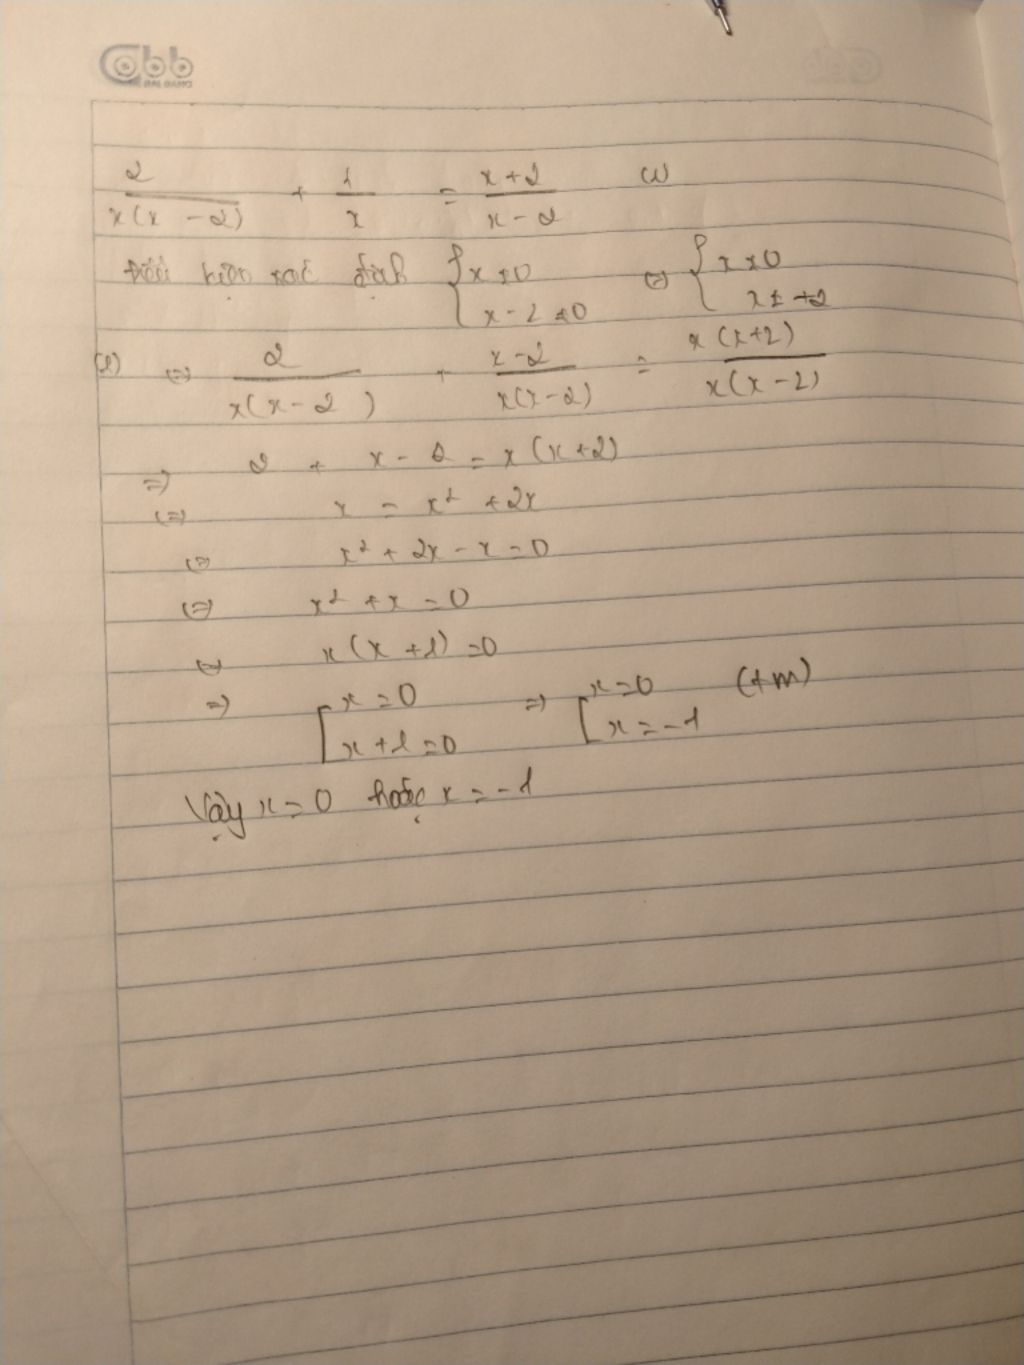 2/(x(x - 2)) + 1/x = (x+2)/(x-2) (1)
Điều kiện xác định { x ≠ 0 ; x - 2 ≠ 0 ⇔ { x ≠ 0 ; x ≠ +2
(1) ⇔ 2/(x(x-2)) + (x-2)/(x(x-2)) = x(x+2)/(x(x-2))
⇒ 2 + x - 2 = x(x+2)
⇔ x = x² + 2x
⇔ x² + 2x - x = 0
⇔ x² + x = 0
⇔ x(x+1) = 0
⇒ [ x = 0 ; x + 1 = 0 ⇒ [ x = 0 ; x = -1 (tm)
Vậy x = 0 hoặc x = -1